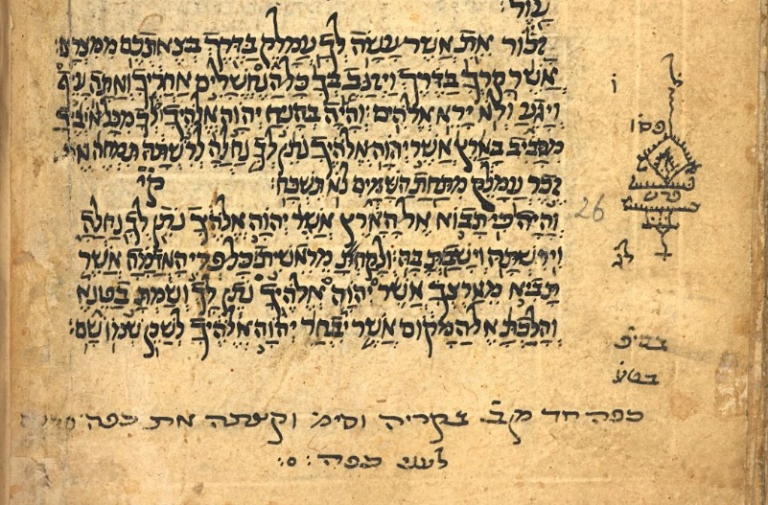 זכור את אשר עשה לך עמלק בדרך בצאתכם ממצרים
אשר קרך בדרך ויזנב בך כל הנחשלים אחריך ואתה עיף
ו
ויגע ולא ירא אלהים והיה בהניח יהוה אלהיך לך מכל איביך
פסו
מסביב בארץ אשר יהוה אלהיך נתן לך נחלה לרשתה תמחה את
זכר עמלק מתחת השמים לא תשכח׃
קי
פרש
26
והיה כי תבוא אל הארץ אשר יהוה אלהיך נתן לך נחלה
וירשתה וישבת בה׃ ולקחת מראשית כל פרי האדמה אשר
תביא מארצך אשר יהוה אלהיך נתן לך ושמת בטנא
והלכת אל המקום אשר יבחר יהוה אלהיך לשכן שמו שם׃
בטע
כפה חד מן ב בקריה וסימ וקצתה את כפה
כפה